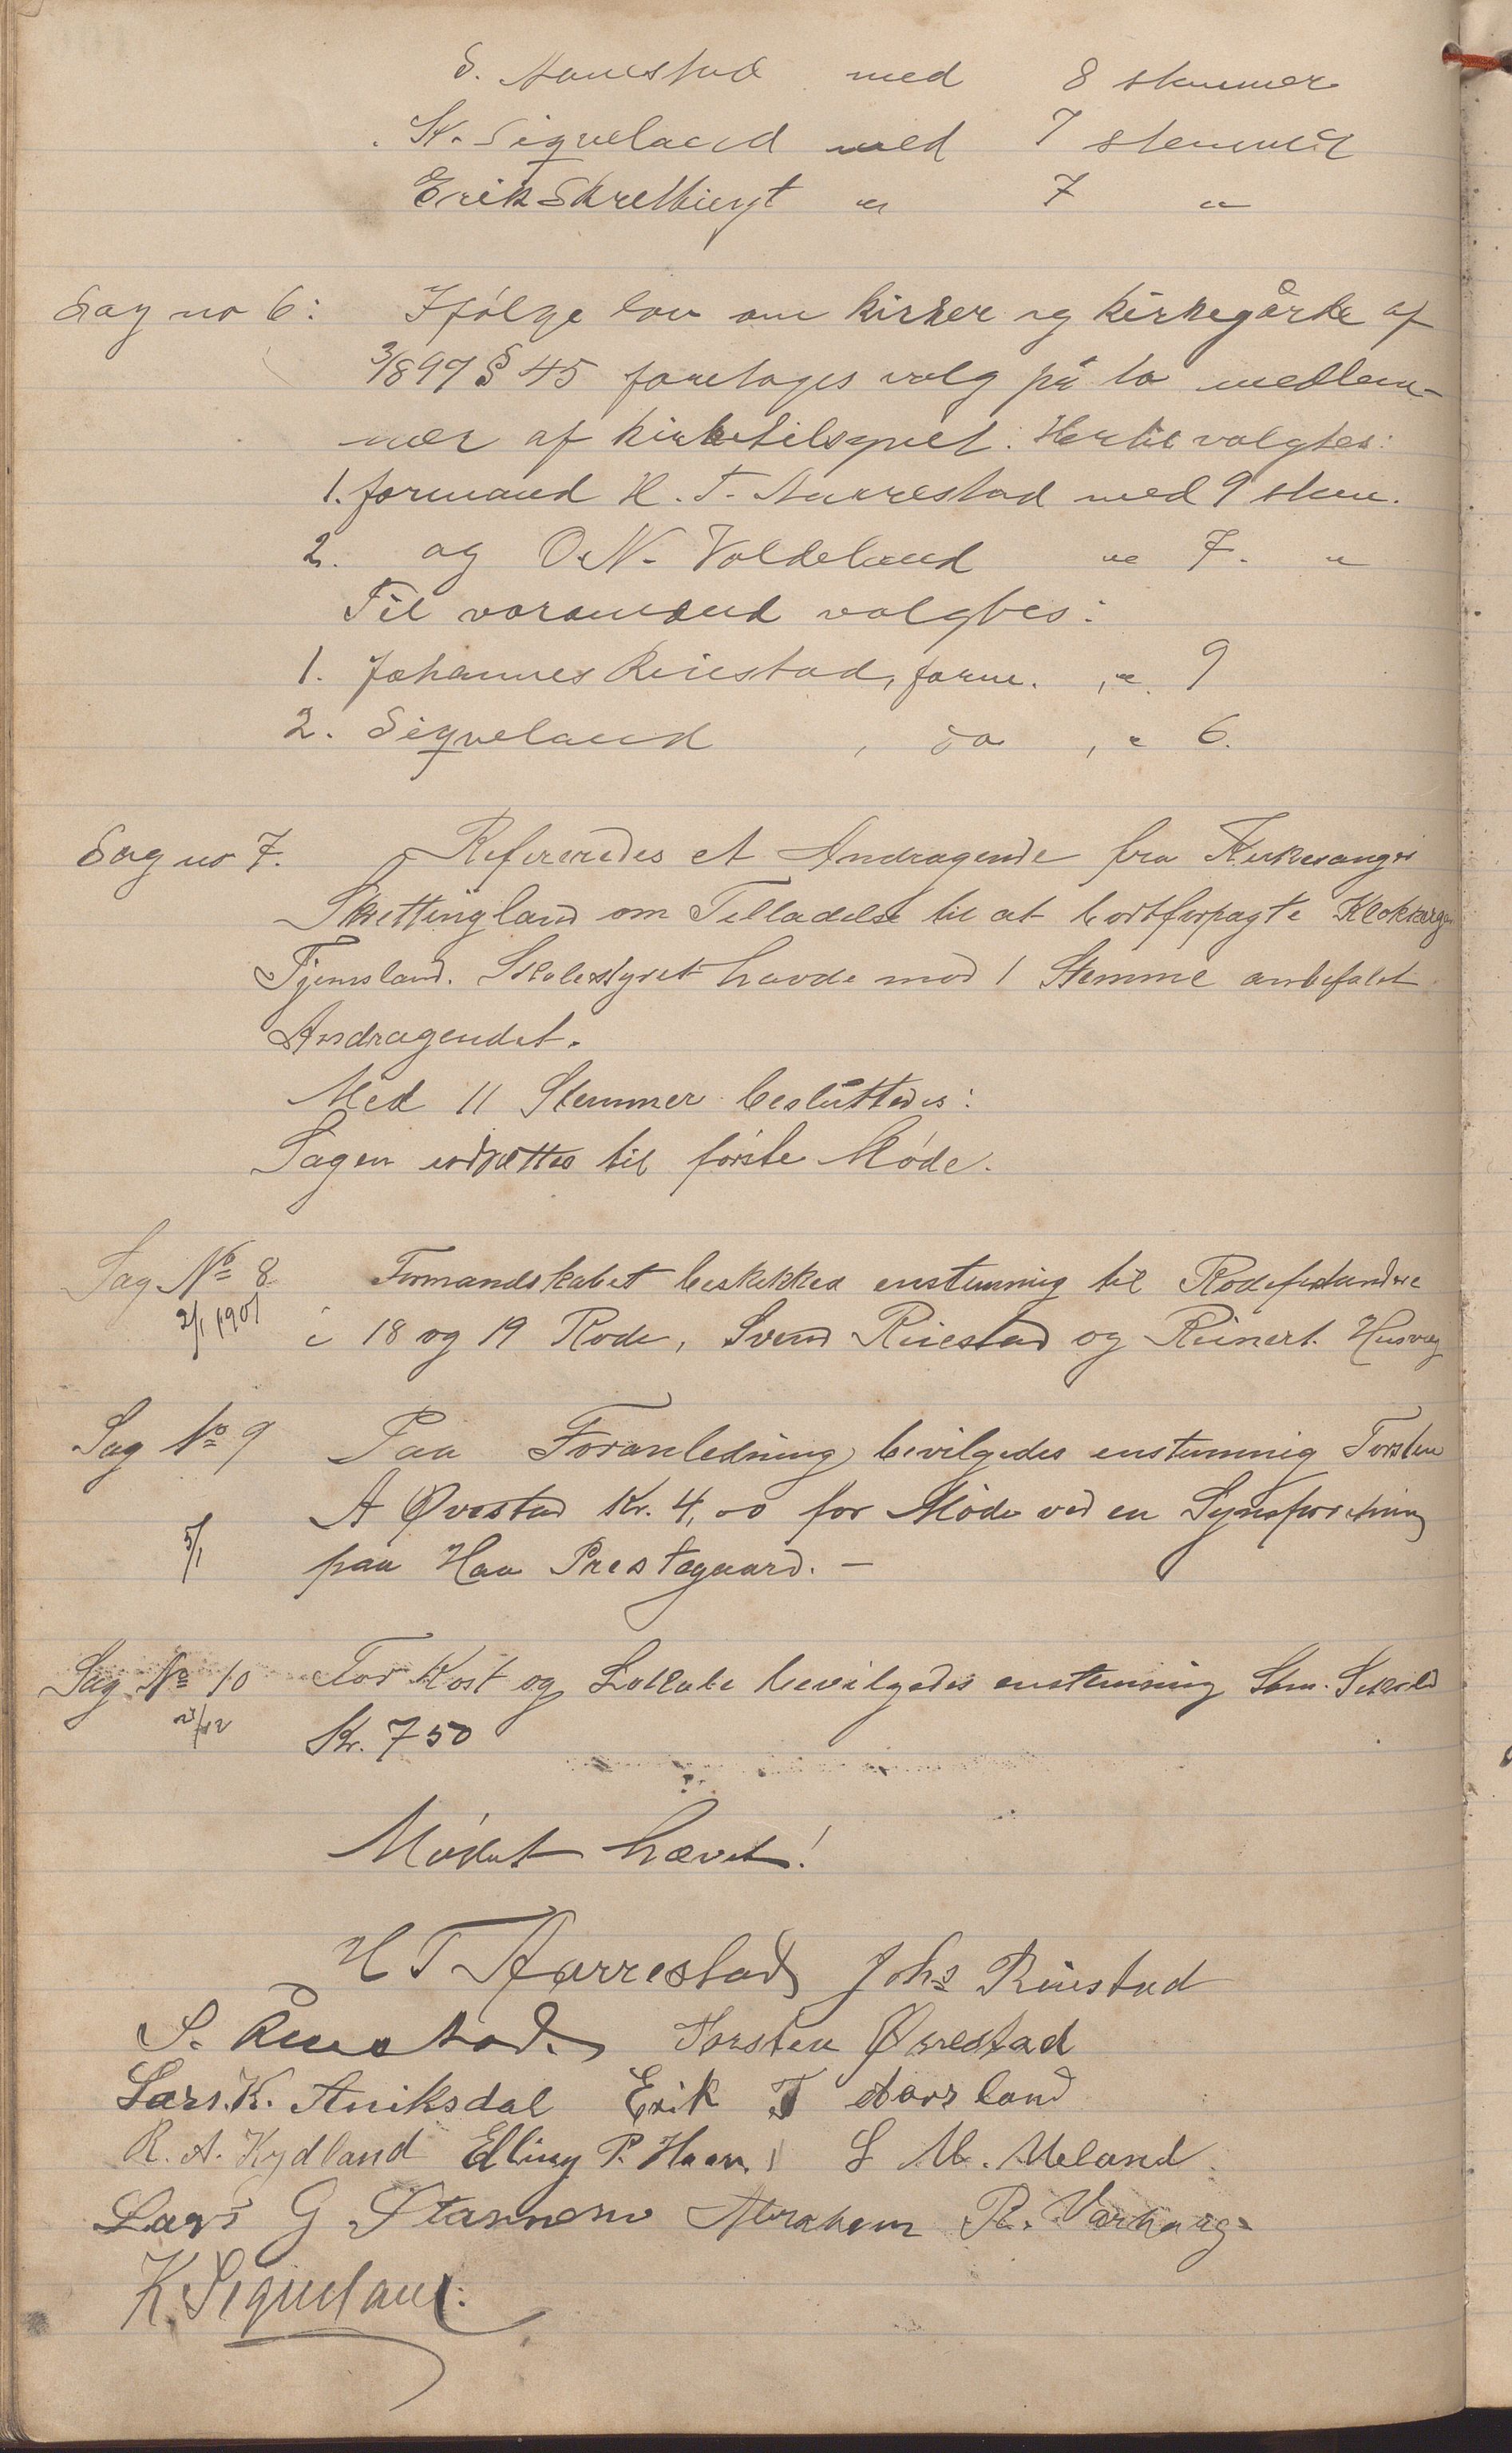 S. Aanestad med 8 stemmer
K. Sigveland med 7 stemmer
Erik " 7 "
Sag no 6: Ifólge lov om kirker og kirkegårde af
3/897 § 45 foretoges valg på to medlem-
mer af kirketilsynet. Hertil valgtes:
1. formand H. T. Aarrestad med 9 stem.
2. og O. N. Voldeland " 7. "
Til varamænd valgtes:
1. Johannes Riiestad, form. , " 9
2. Sigveland , do , " 6.
Sag no 7. Refereredes et Andragende fra Kirkesanger
Skrettingland om Tilladelse til at bortforpagte
Tjemsland. Skolestyret havde mod 1 Stemme anbefalet
Andragendet.
Med 11 Stemmer besluttedes:
Sagen udsættes til fórste Móde.
Sag No 8. Formandskabet beskikked enstemmig til Rodeforstandere
2/1 1901 i 18 og 19 Rode, Svend Riiestad og Reinert Husvæg
Sag No 9 Paa Foranledning bevilgedes enstemmig Torsten
A Øvestad Kr. 4,00 for Móde ved en Synsforretning
5/1 paa Haa Prestegaard. —
Sag No 10 For Kost og Lokale bevilgedes enstemmig Sam.
Kr. 7 50
Módet hævet!
H T Aarrestad Johs Riiestad
S. Torsten Øvrestad
Lars. K. Aniksdal Erik T Aarsland
R. A. Kydland Elling P. Haar. L M. Meland.
Lars G Stannem Abraham R. Varhaug.
K. Sigveland.